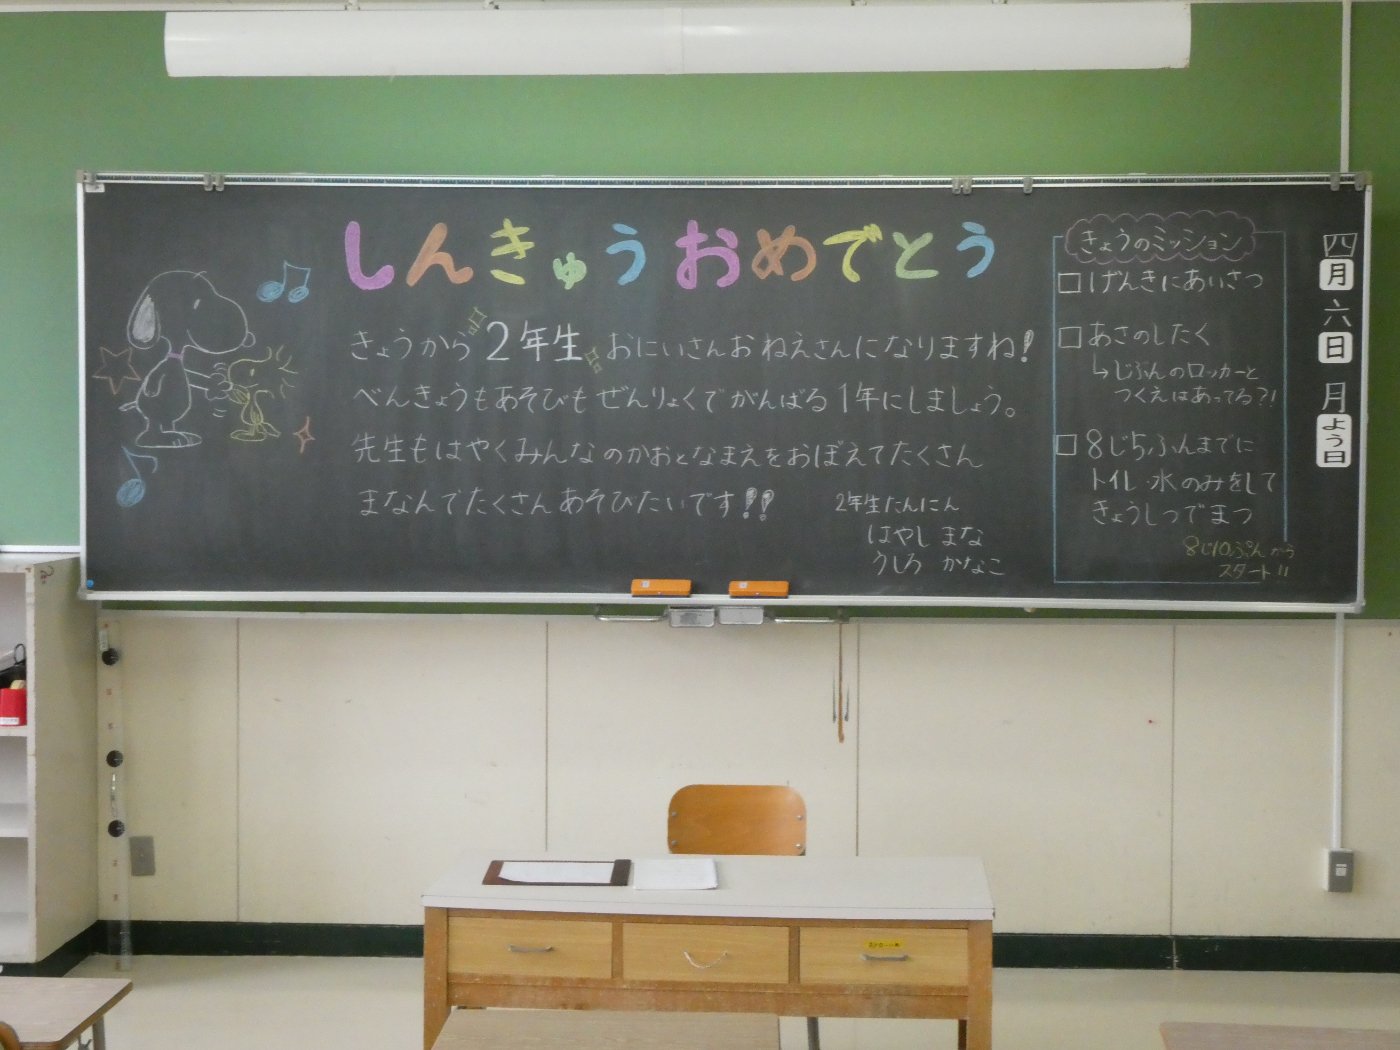 しんきゅうおめでとう
きょうから2年生 おにいさんおねえさんになりますね!
べんきょうもあそびもぜんりょくでがんばる1年にしましょう。
先生もはやくみんなのかおとなまえをおぼえてたくさん
まなんでたくさんあそびたいです!!
2年生たんにん
はやし まな
うしろ かなこ
きょうのミッション
□げんきにあいさつ
□あさのしたく
↳じぶんのロッカーと
つくえはあってる?!
□8じ5ふんまでに
トイレ・水のみをして
きょうしつでまつ
8じ10ぷんから
スタート!!
四月六日月よう日